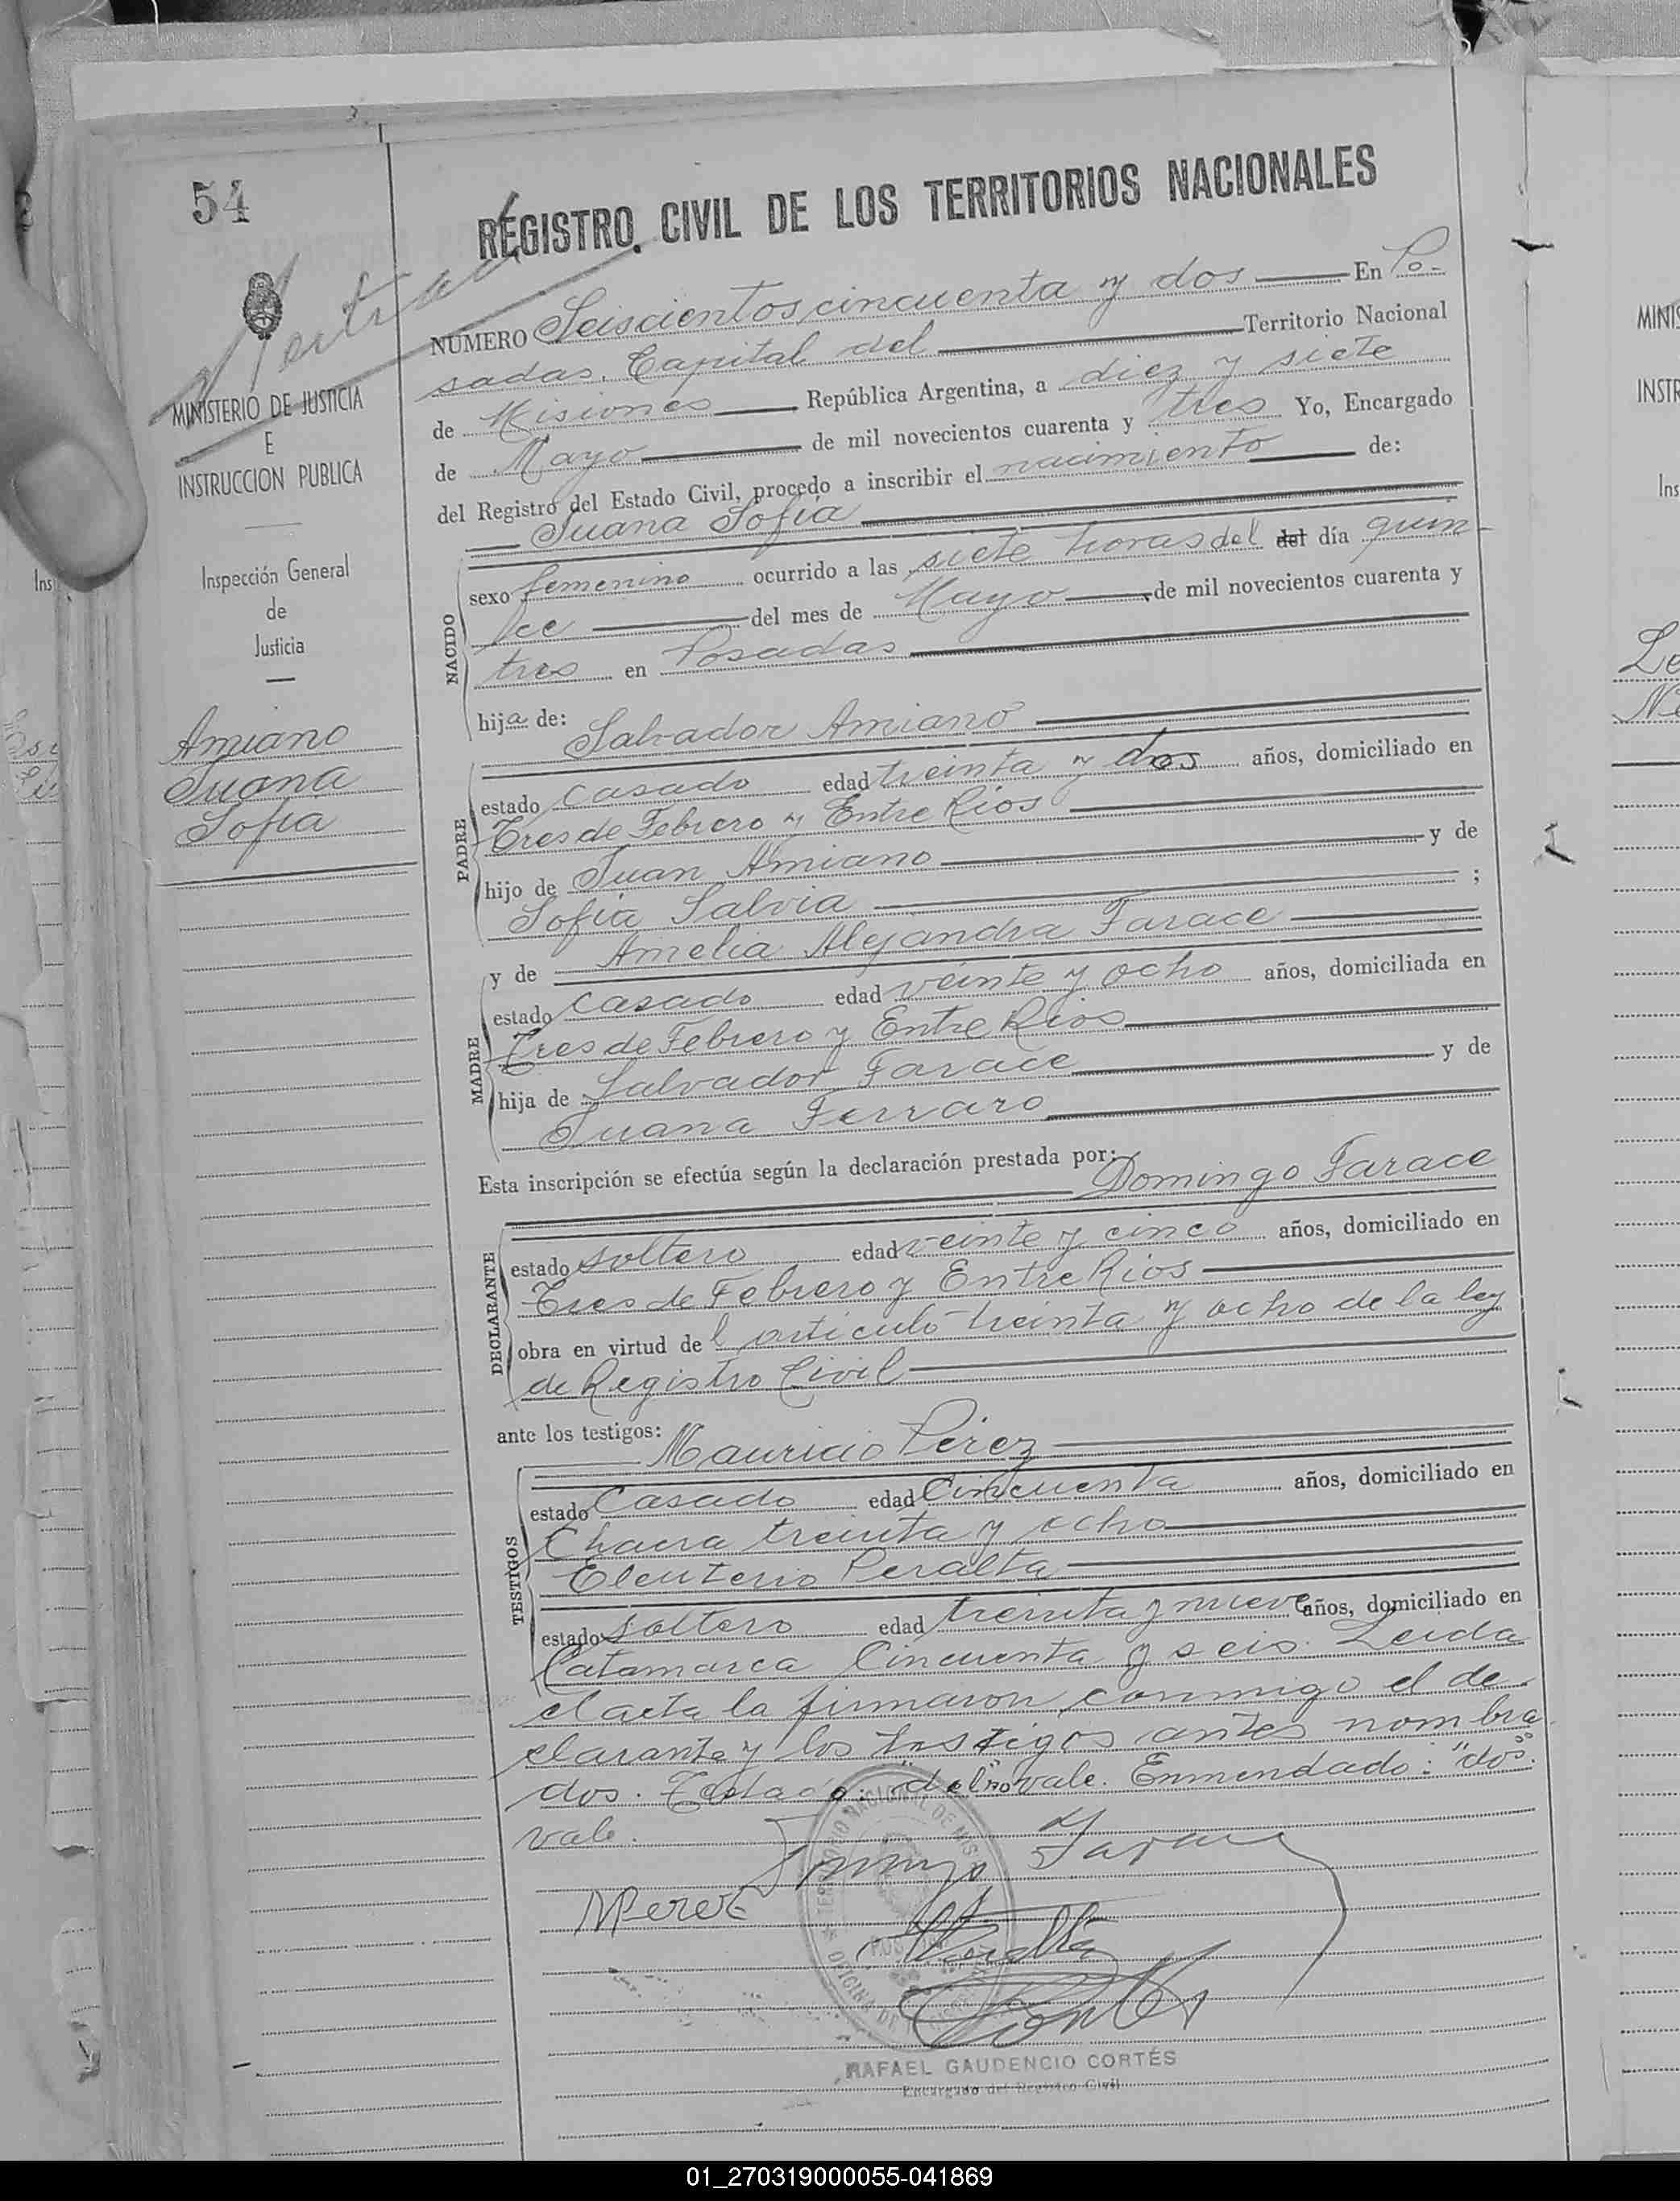 54
REGISTRO CIVIL DE LOS TERRITORIOS NACIONALES
MINISTERIO DE JUSTICIA
E
INSTRUCCION PUBLICA
Inspección General
de
Justicia
Amiano
Juana
Sofia
NUMERO Seiscientos cincuenta y dos En Po-
sadas, Capital del Territorio Nacional
de Misiones República Argentina, a diez y siete
de Mayo de mil novecientos cuarenta y tres Yo, Encargado
del Registro del Estado Civil, procedo a inscribir el nacimiento de:
Juana Sofía
NACIDO
sexo femenino ocurrido a las siete horas del del día quin-
ce del mes de Mayo de mil novecientos cuarenta y
tres en Posadas
hija de: Salvador Amiano
PADRE
estado casado edad treinta y dos años, domiciliado en
Tres de Febrero y Entre Rios
hijo de Juan Amiano y de
Sofia Salvia ;
y de Amelia Alejandra Farace
MADRE
estado casado edad veinte y ocho años, domiciliada en
Tres de Febrero y Entre Rios
hija de Salvador Farace y de
Juana Ferraro
Esta inscripción se efectúa según la declaración prestada por:
Domingo Farace
DECLARANTE
estado soltero edad veinte y cinco años, domiciliado en
Tres de Febrero y Entre Rios
obra en virtud del articulo treinta y ocho de la ley
de Registro Civil
ante los testigos: Mauricio Pérez
TESTIGOS
estado Casado edad Cincuenta años, domiciliado en
Chacra treinta y ocho
Eleuterio Peralta
estado soltero edad treinta y nueve años, domiciliado en
Catamarca Cincuenta y seis. Leida
el acta la firmaron conmigo el de-
clarante y los testigos antes nombra
dos. Testado: "del" no vale. Enmendado: "dos".
vale.
Domingo Farace
MPerez
RAFAEL GAUDENCIO CORTÉS
Encargado del Registro Civil
01_270319000055-041869